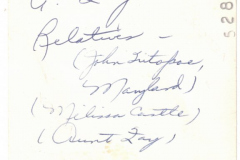 Relatives –
(John Tritapoe,
Maryland)
(Milissa Castle)
(Aunt Fay)
528